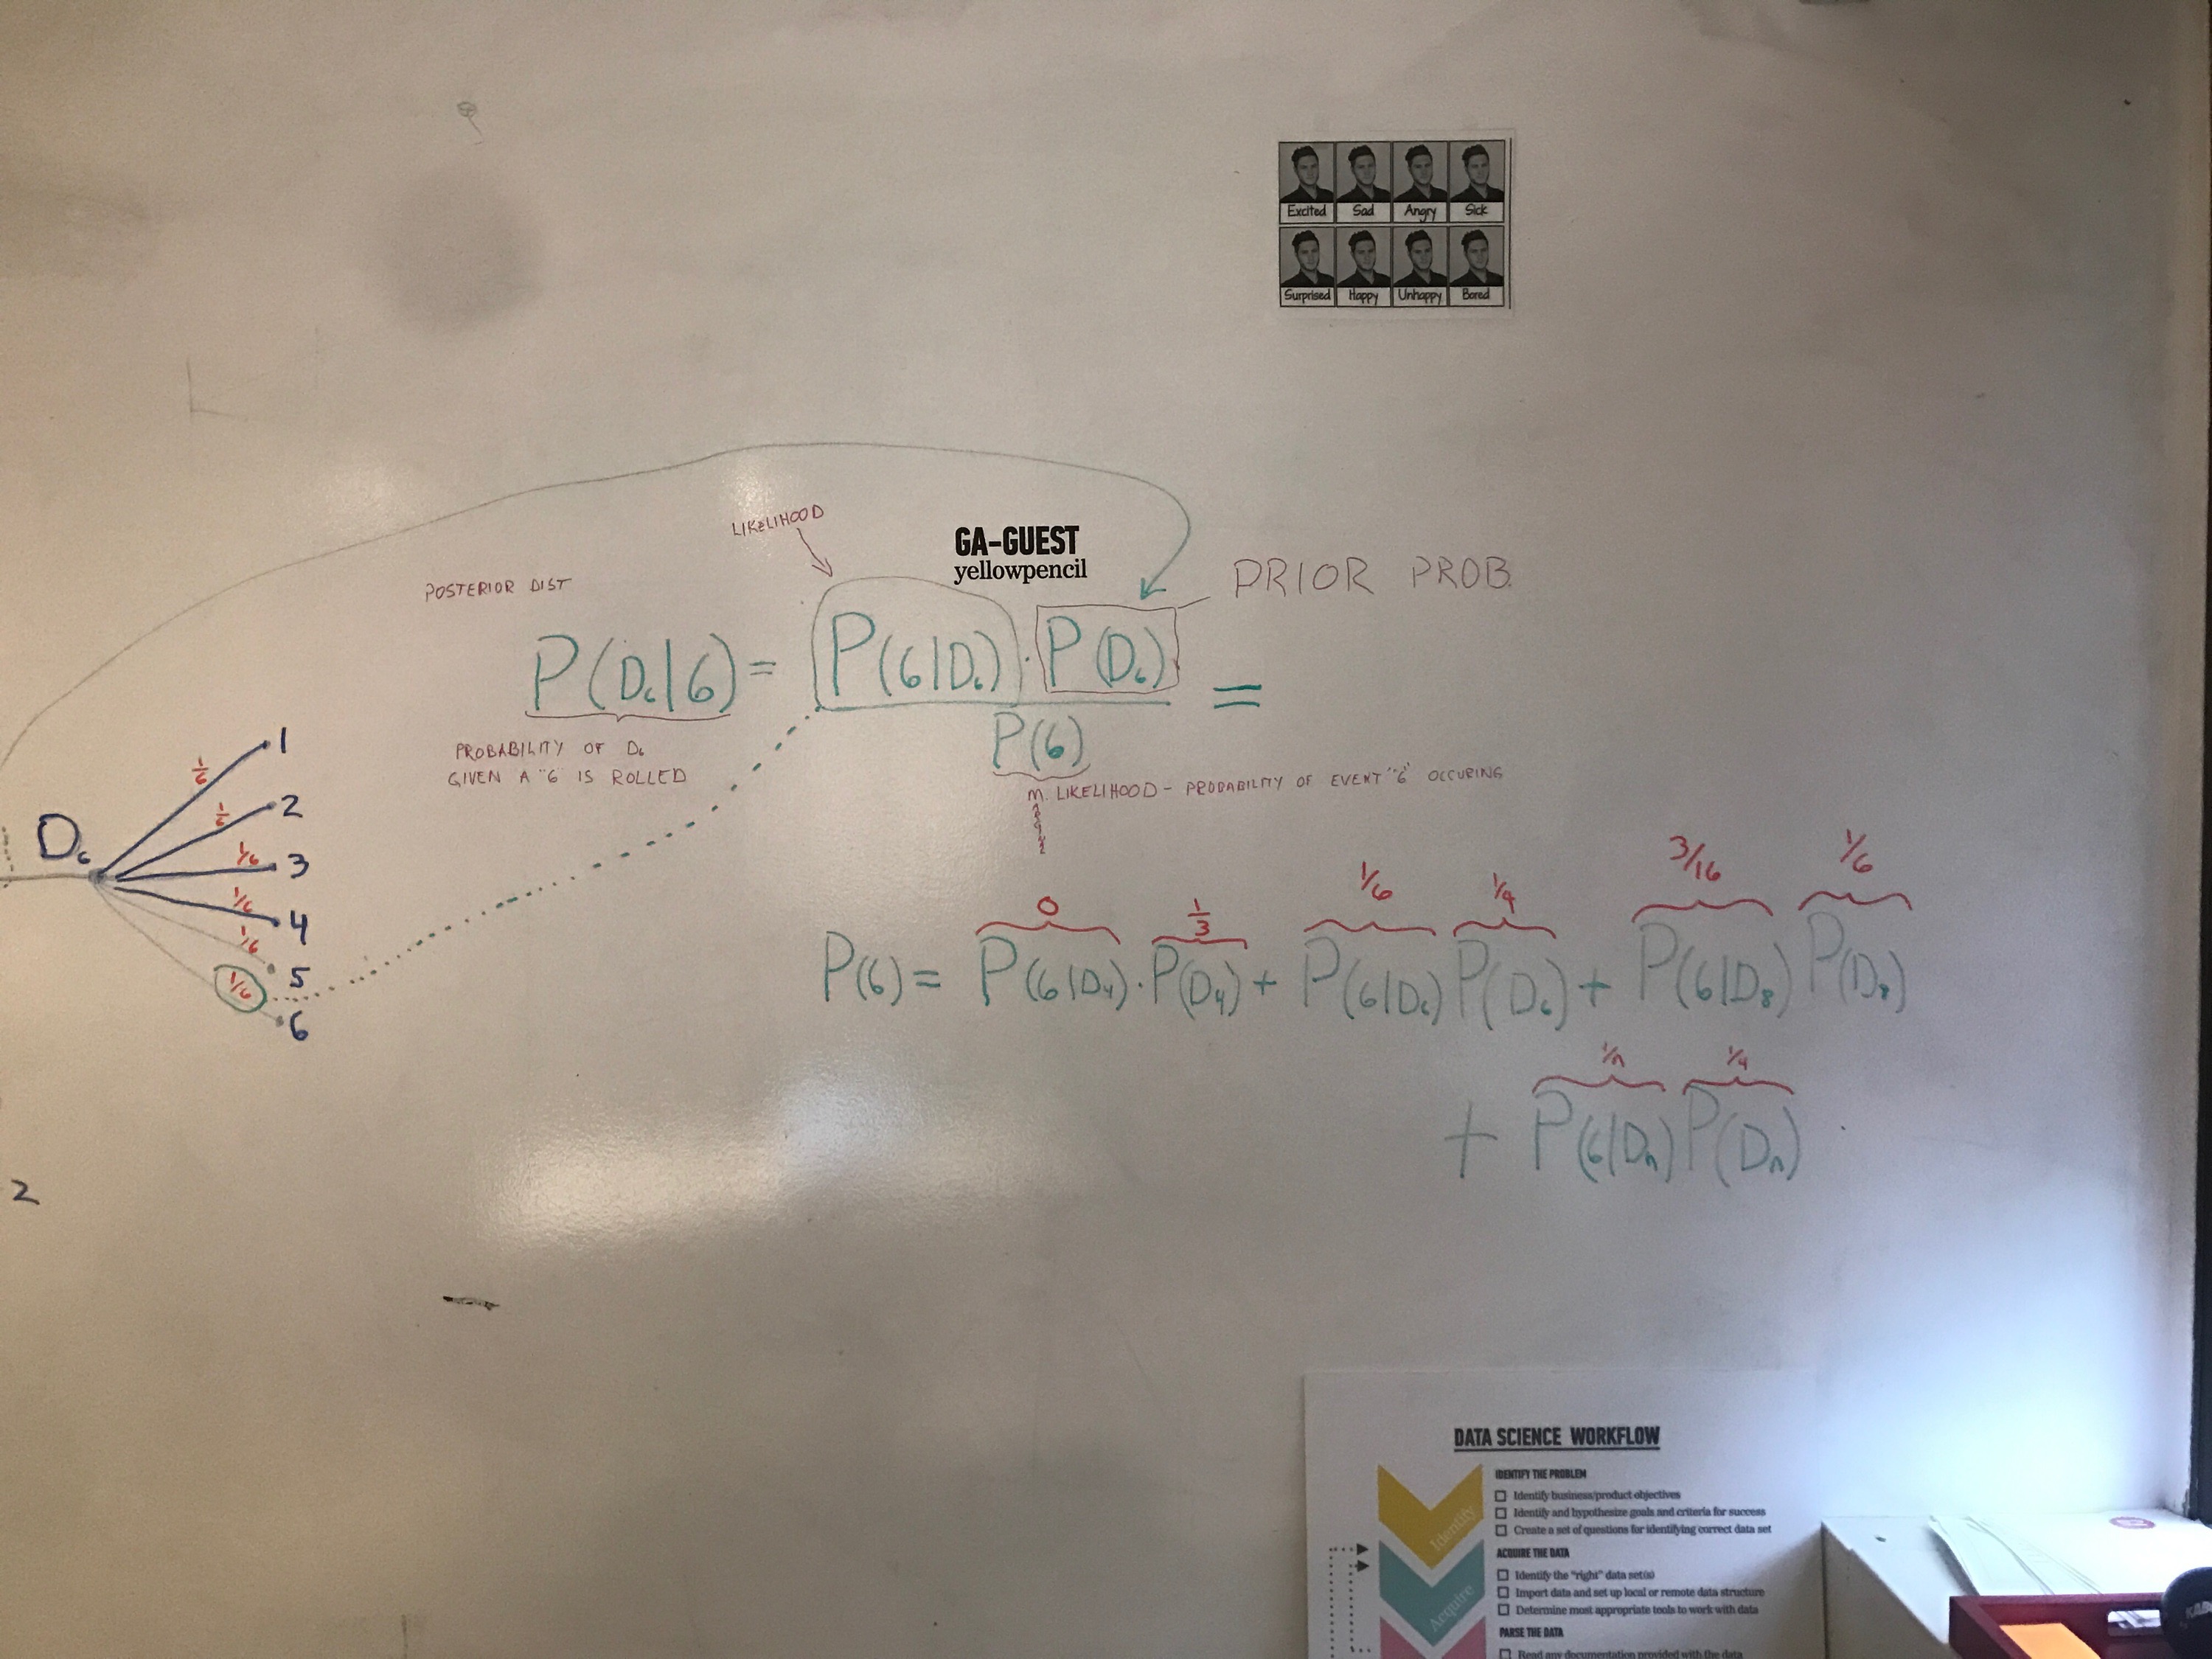 Excited Sad Angry Sick
Surprised Happy Unhappy Bored
LIKELIHOOD
GA-GUEST
yellowpencil
PRIOR PROB.
POSTERIOR DIST
P(D₆|6) = P(6|D₆) · P(D₆) =
P(6)
PROBABILITY OF D₆
GIVEN A "6" IS ROLLED
M. LIKELIHOOD - PROBABILITY OF EVENT "6" OCCURING
D₆
1/6 1
1/6 2
1/6 3
1/6 4
1/6 5
1/6 6
0 1/3 1/6 1/4 3/16 1/6
P(6) = P(6|D₄) · P(D₄) + P(6|D₆) P(D₆) + P(6|D₈) P(D₈)
1/n 1/4
+ P(6|Dₙ) P(Dₙ)
2
DATA SCIENCE WORKFLOW
Identify
IDENTIFY THE PROBLEM
Identify business/product objectives
Identify and hypothesize goals and criteria for success
Create a set of questions for identifying correct data set
Acquire
ACQUIRE THE DATA
Identify the "right" data set(s)
Import data and set up local or remote data structure
Determine most appropriate tools to work with data
PARSE THE DATA
Read any documentation provided with the data